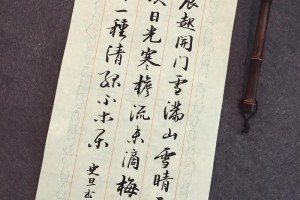 晨起開門雪滿山雪晴
日光寒檐流未滴梅
一種清孤不
史旦书